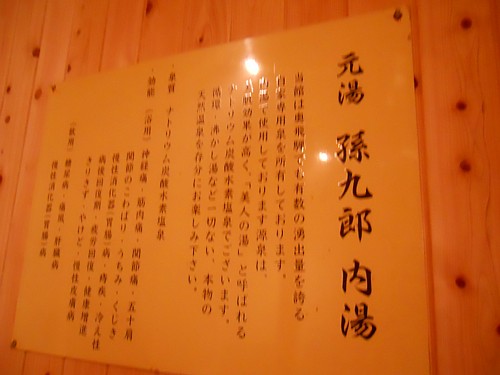 元湯 孫九郎 内湯
当館は奥飛騨でも有数の湧出量を誇る
自家専用泉を所有しております。
て使用しております源泉は、
肌効果が高く、「美人の湯」と呼ばれる
ナトリウム炭酸水素塩泉でございます。
循環・沸かし湯など一切ない、本物の
天然温泉を存分にお楽しみ下さい。
泉質 ナトリウム炭酸水素塩泉
効能 (浴用) 神経痛・筋肉痛・関節痛・五十肩
関節のこわばり・うちみ・くじき
慢性消化器(胃腸)病・痔疾・冷え性
病後回復期・疲労回復・健康増進
きりきず・やけど・慢性皮膚病
(飲用) 糖尿病・痛風・肝臓病
慢性消化器(胃腸)病